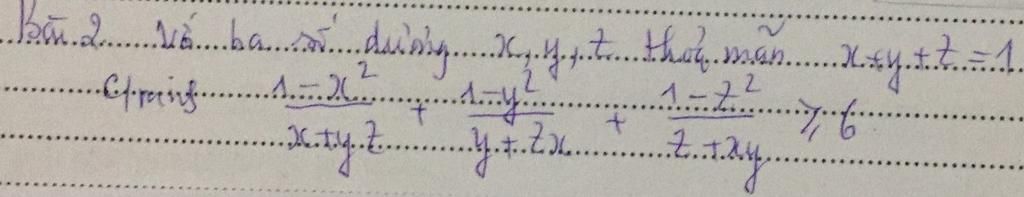 Bài 2 Với ba số dương x, y, z thoả mãn x+y+z=1
C/minh (1-x²)/(x+yz) + (1-y²)/(y+zx) + (1-z²)/(z+xy) ≥ 6